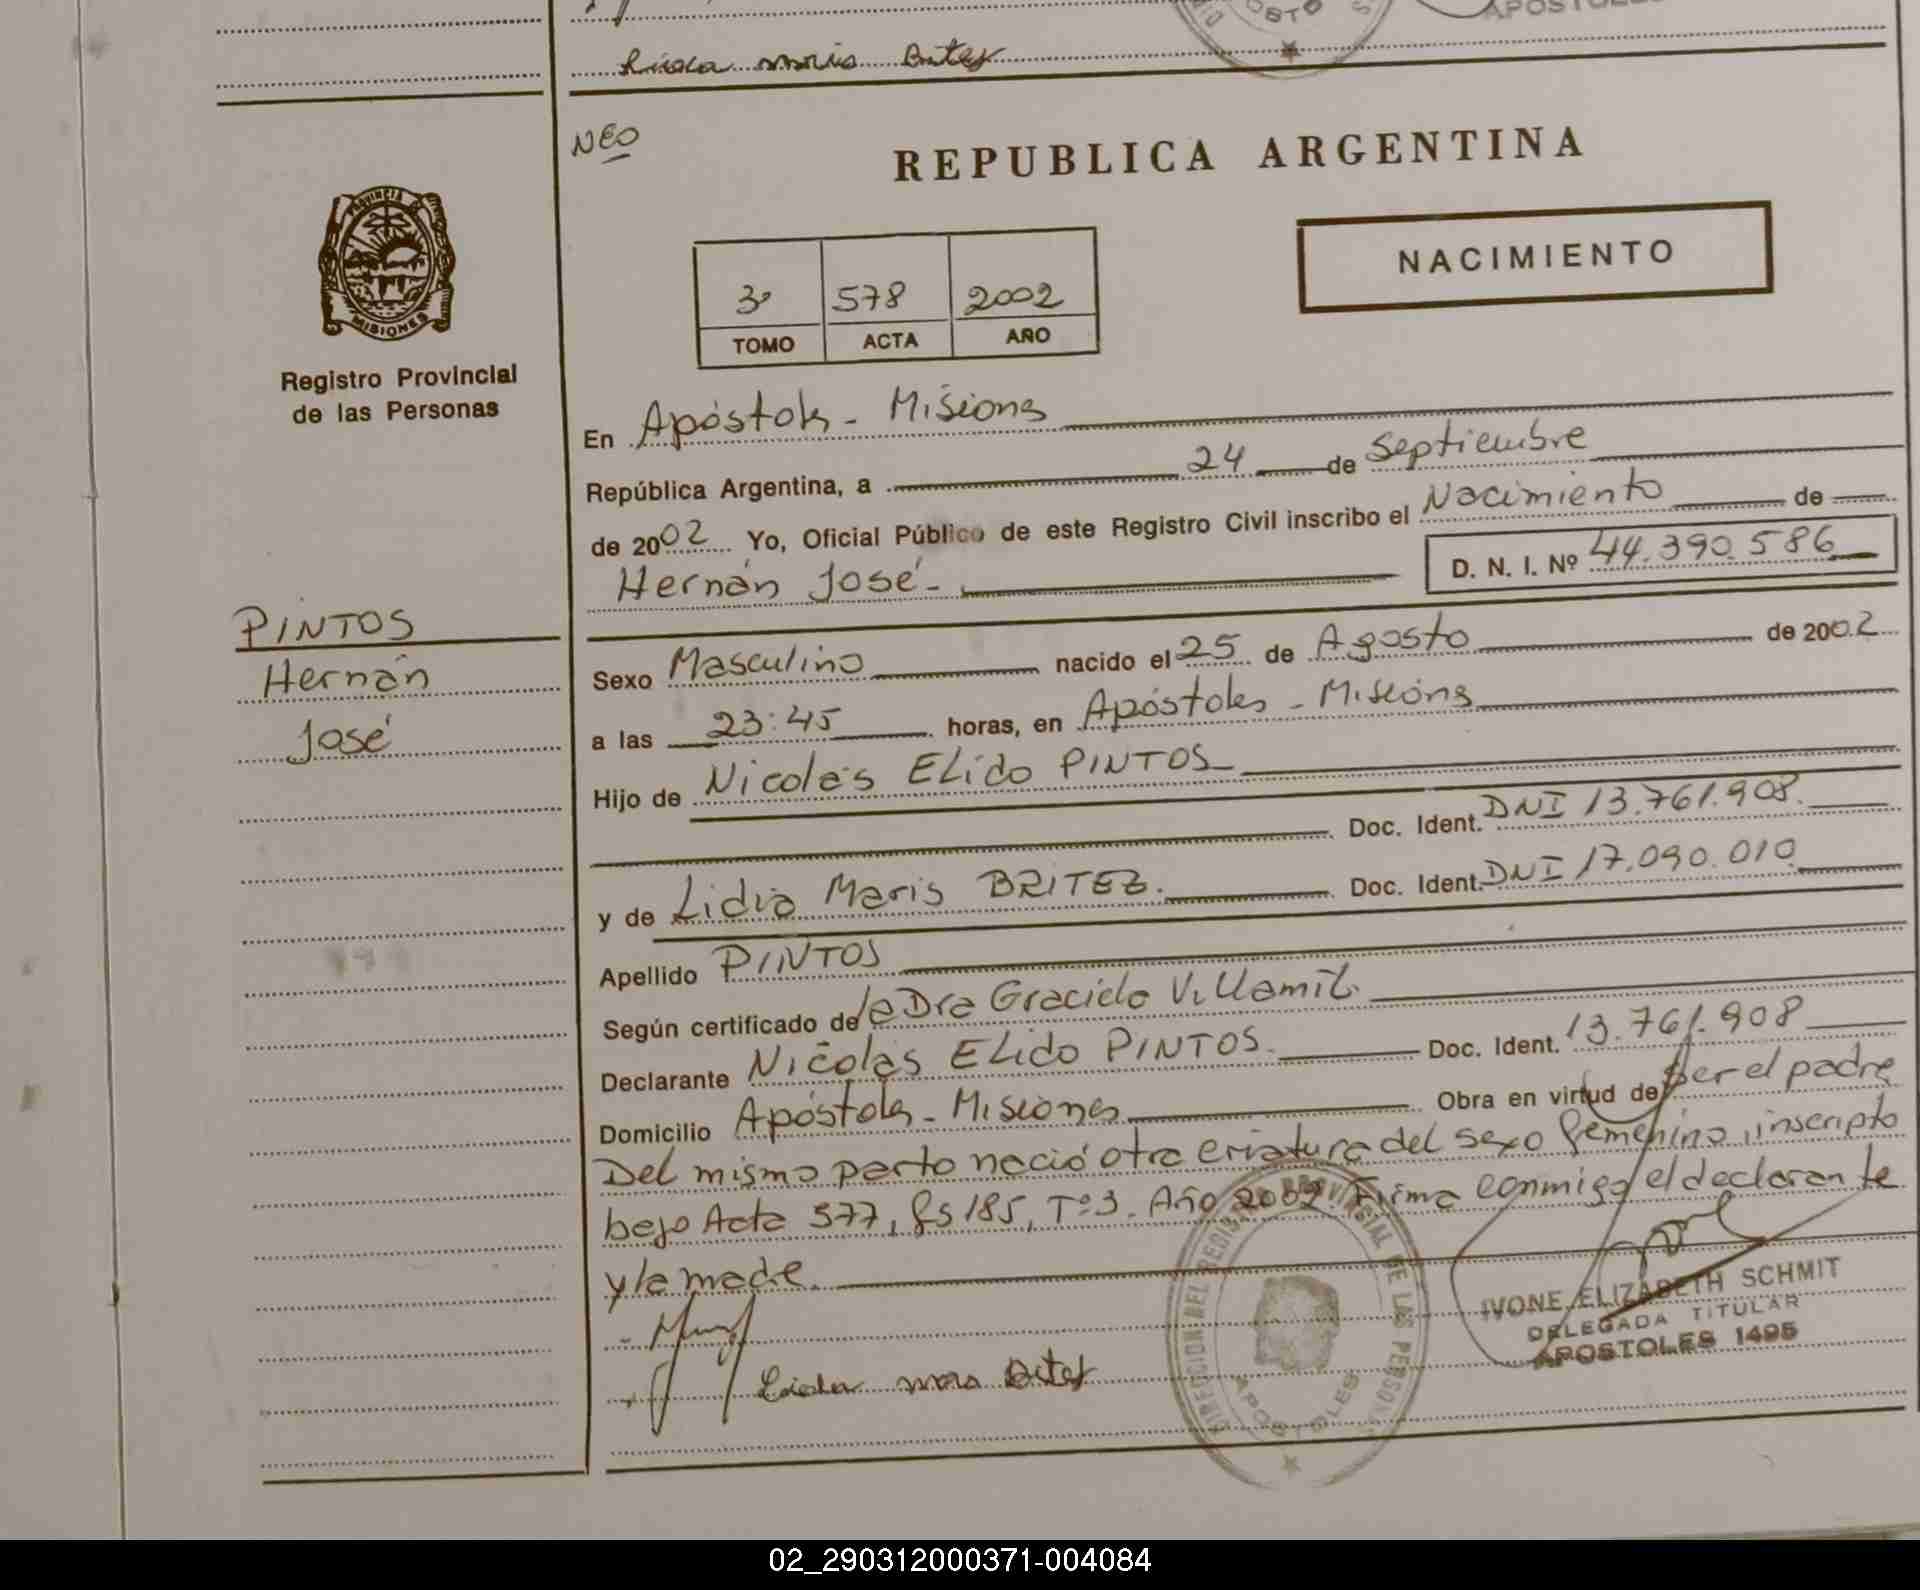 APOSTOLES
NEO
REPUBLICA ARGENTINA
PROVINCIA DE
MISIONES
NACIMIENTO
3º 578 2002
TOMO ACTA AÑO
Registro Provincial
de las Personas
En Apóstoles - Misiones
República Argentina, a 24 de Septiembre
de 2002 Yo, Oficial Público de este Registro Civil inscribo el Nacimiento de
Hernán José - D. N. I. Nº 44.390.586
PINTOS
Hernán
José
Sexo Masculino nacido el 25 de Agosto de 2002
a las 23:45 horas, en Apóstoles - Misiones
Hijo de Nicolás ELido PINTOS
Doc. Ident. DNI 13.761.908.
y de Lidia Maris BRITEZ. Doc. Ident. DNI 17.090.010
Apellido PINTOS
Según certificado de la Dra Graciela Villamil.
Declarante Nicolás ELido PINTOS. Doc. Ident. 13.761.908
Domicilio Apóstoles - Misiones Obra en virtud de ser el padre
Del mismo parto nació otra criatura del sexo femenino, inscripto
bajo Acta 577, fs 185, Tº 3. Año 2002. Firma conmigo el declarante
y la madre.
DIRECCION DEL REGISTRO PROVINCIAL DE LAS PERSONAS
APOSTOLES
IVONE ELIZABETH SCHMIT
DELEGADA TITULAR
APOSTOLES 1495
02_290312000371-004084